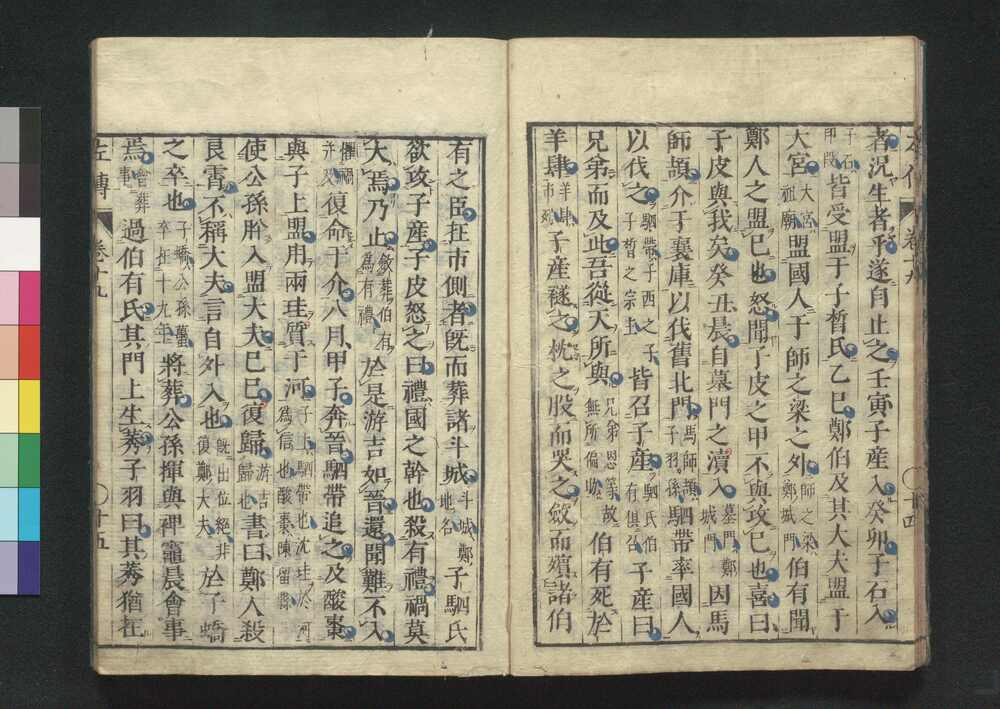 者況生者乎遂自止之壬寅子產入癸卯子石入
子石印段皆受盟于子晳氏乙巳鄭伯及其大夫盟于
大宮大宮祖廟盟國人于師之梁之外師之梁鄭城門伯有聞
鄭人之盟己也怒聞子皮之甲不與攻己也喜曰
子皮與我矣癸丑晨自墓門之瀆入墓門鄭城門因馬
師頡介于襄庫以伐舊北門馬師頡子羽孫駟帶率國人
以伐之駟帶子西之子子晳之宗主皆召子產駟氏伯有俱召子產曰
兄弟而及此吾從天所與兄弟恩等故無所偏助伯有死於
羊肆羊肆市列子產襚之枕之股而哭之斂而殯諸伯
有之臣在市側者旣而葬諸斗城斗城鄭地名子駟氏
欲攻子產子皮怒之曰禮國之幹也殺有禮禍莫
大焉乃止斂葬伯有為有禮於是游吉如晉還聞難不入
懼禍并及復命于介八月甲子奔晉駟帶追之及酸棗
與子上盟用兩珪質于河子上駟帶也沈珪於河為信也酸棗陳留縣
使公孫肸入盟大夫己巳復歸游吉歸也書曰鄭人殺
良霄不稱大夫言自外入也旣出位絕非復鄭大夫於子蟜
之卒也子蟜公孫蠆卒在十九年將葬公孫揮與裨竈晨會事
焉會葬事過伯有氏其門上生莠子羽曰其莠猶在
左傳
卷十九
十五